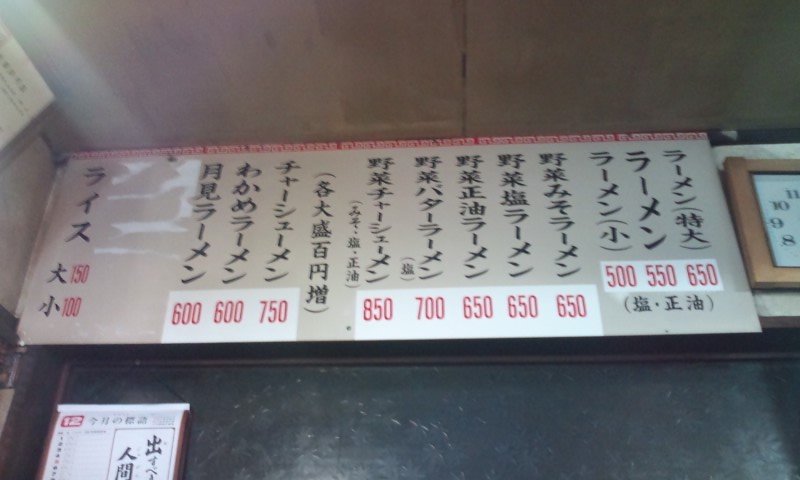 ラーメン(特大)
650
ラーメン
550
ラーメン(小)
500
(塩・正油)
野菜みそラーメン
650
野菜塩ラーメン
650
野菜正油ラーメン
650
野菜バターラーメン
(塩)
700
野菜チャーシューメン
(みそ・塩・正油)
850
(各大盛百円増)
チャーシューメン
750
わかめラーメン
600
月見ラーメン
600
ライス
大150
小100
11
10
9
8
12
今月の標語
出すべ
人間